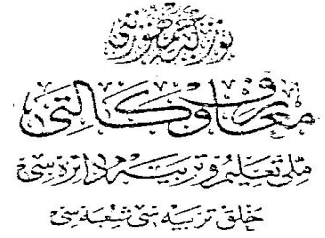 توركیه جمهوریتی
معارف وكالتی
ملی تعلیم و تربیه دائره‌سی
خلق تربیه‌سی شعبه‌سی